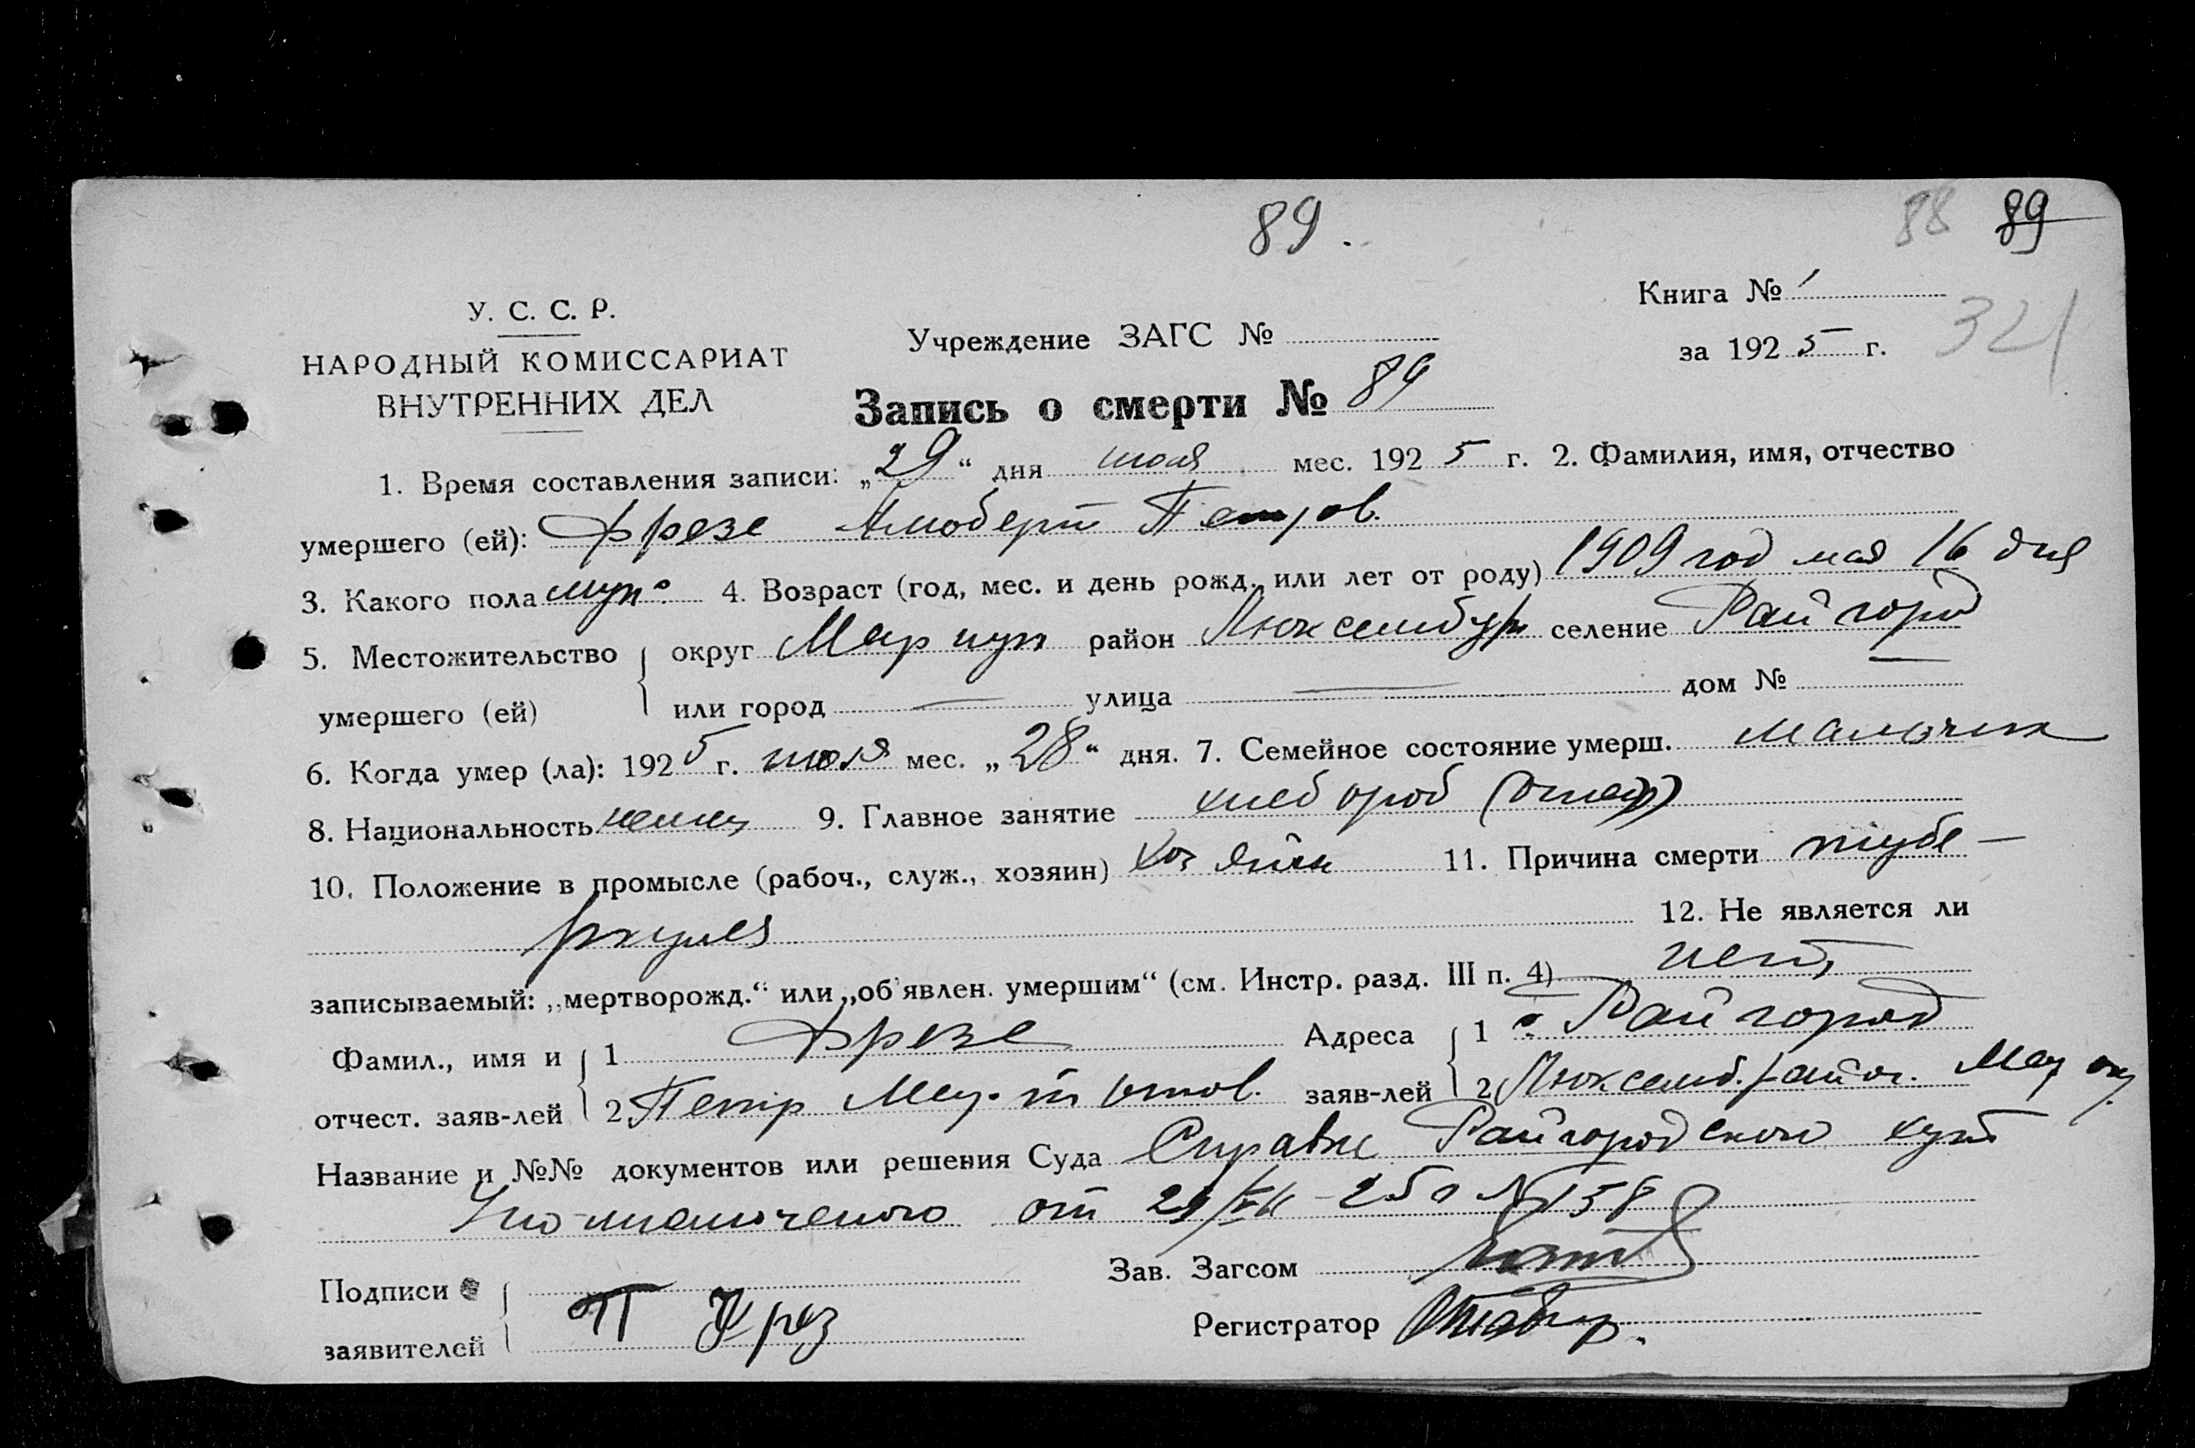 89.
88 89
Книга № 1
321
У. С. С. Р.
НАРОДНЫЙ КОМИССАРИАТ
ВНУТРЕННИХ ДЕЛ
Учреждение ЗАГС №
за 1925 г.
Запись о смерти № 89
1. Время составления записи: „29“ дня июля мес. 1925 г. 2. Фамилия, имя, отчество
умершего (ей): Фрезе Петров.
3. Какого пола муж. 4. Возраст (год, мес. и день рожд. или лет от роду) 1909 год мая 16 дня
5. Местожительство округ Мариуп район Люксембург селение Райгород
умершего (ей) или город — улица — дом № —
6. Когда умер (ла): 1925 г. июля мес. „28“ дня. 7. Семейное состояние умерш. мальчик
8. Национальность немец 9. Главное занятие хлебороб (отец)
10. Положение в промысле (рабоч., служ., хозяин) хозяин 11. Причина смерти тубе-
ркулез 12. Не является ли
записываемый: „мертворожд.“ или „об'явлен. умершим“ (см. Инстр. разд. III п. 4) нет
Фамил., имя и 1 Фрезе Адреса 1 Райгород
отчест. заяв-лей 2 Петр заяв-лей 2 Люксемб. район. Мар. окр.
Название и №№ документов или решения Суда Справка Райгородского хут
Уполномоченого от 29/VII-25 г №158
Подписи Зав. Загсом
заявителей П Фрез Регистратор